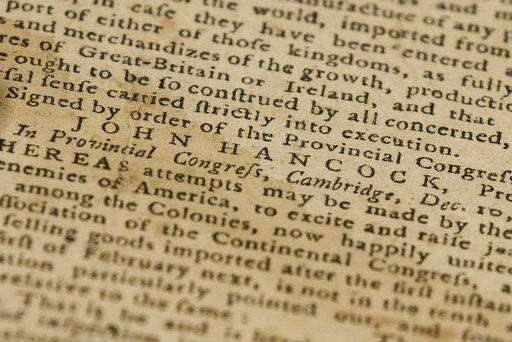 anufacture of any
the world, imported from
port of either of thoſe kingdoms, as fully
in caſe they have been entered
and merchandizes of the growth, productio
res of Great-Britain or Ireland, and that
ought to be ſo conſtrued by all concerned,
ſal ſenſe carried ſtrictly into execution.
Signed by order of the Provincial Congreſs
JOHN HANCOCK, Pre
In Provincial Congreſs, Cambridge, Dec. 10,
HEREAS attempts may be made by the
enemies of America, to excite and raiſe je
among the Colonies, now happily unite
ſſociation of the Continental Congreſs, a
ſelling goods imported after the firſt inſtan
firſt of February next, is not in the tenth a
ation particularly pointed out, and
relative to the ſame:
That is he and is